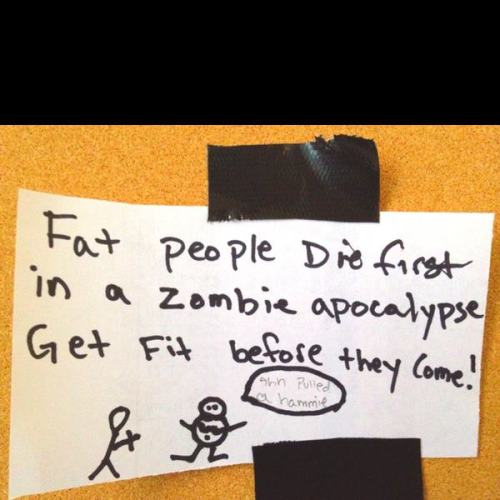 Fat people Die first
in a zombie apocalypse
Get Fit before they Come!
ahh Pulled
a hammie